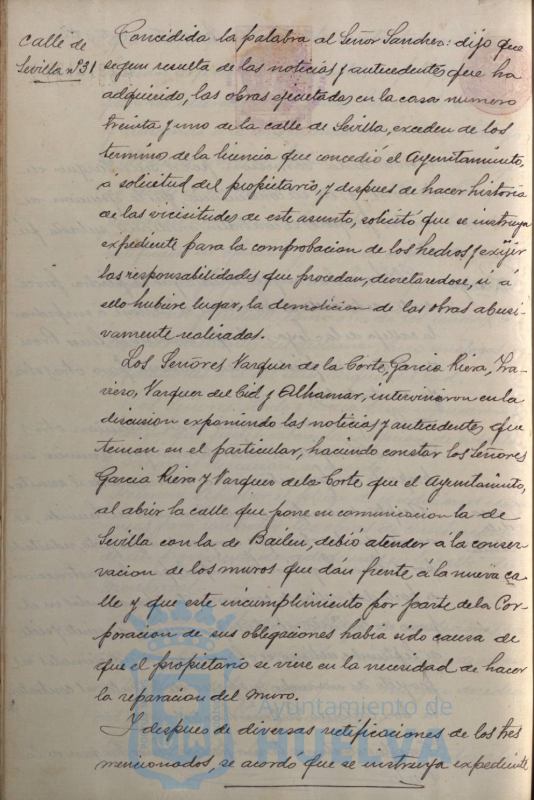 Calle de
Sevilla nº 31
Concedida la palabra al Señor Sanchez: dijo que
segun resulta de las noticias y antecedentes que ha
adquirido, las obras ejecutadas en la casa numero
treinta y uno de la calle de Sevilla, exceden de los
terminos de la licencia que concedió el Ayuntamiento,
a solicitud del propietario, y despues de hacer historia
de las vicisitudes de este asunto, solicitó que se instruya
expediente para la comprobacion de los hechos y exijir
las responsabilidades que procedan, decretandose, si á
ello hubiere lugar, la demolicion de las obras abusi-
vamente realizadas.
Los Señores Vazquez de la Corte, Garcia Riera, Tra-
vieso, Vazquez del Cid y Alhamar, intervinieron en la
discusion exponiendo las noticias y antecedentes que
tenian en el particular, haciendo constar los Señores
Garcia Riera y Vazquez de la Corte que el Ayuntamiento,
al abrir la calle que pone en comunicacion la de
Sevilla con la de Bailen, debió atender á la conser-
vacion de los muros que dán frente á la nueva ca-
lle y que este incumplimiento por parte de la Cor-
poracion de sus obligaciones habia sido causa de
que el propietario se viere en la necesidad de hacer
la reparacion del muro.
Y despues de diversas rectificaciones de los tres
mencionados, se acordó que se instruya expediente
Ayuntamiento de
HUELVA